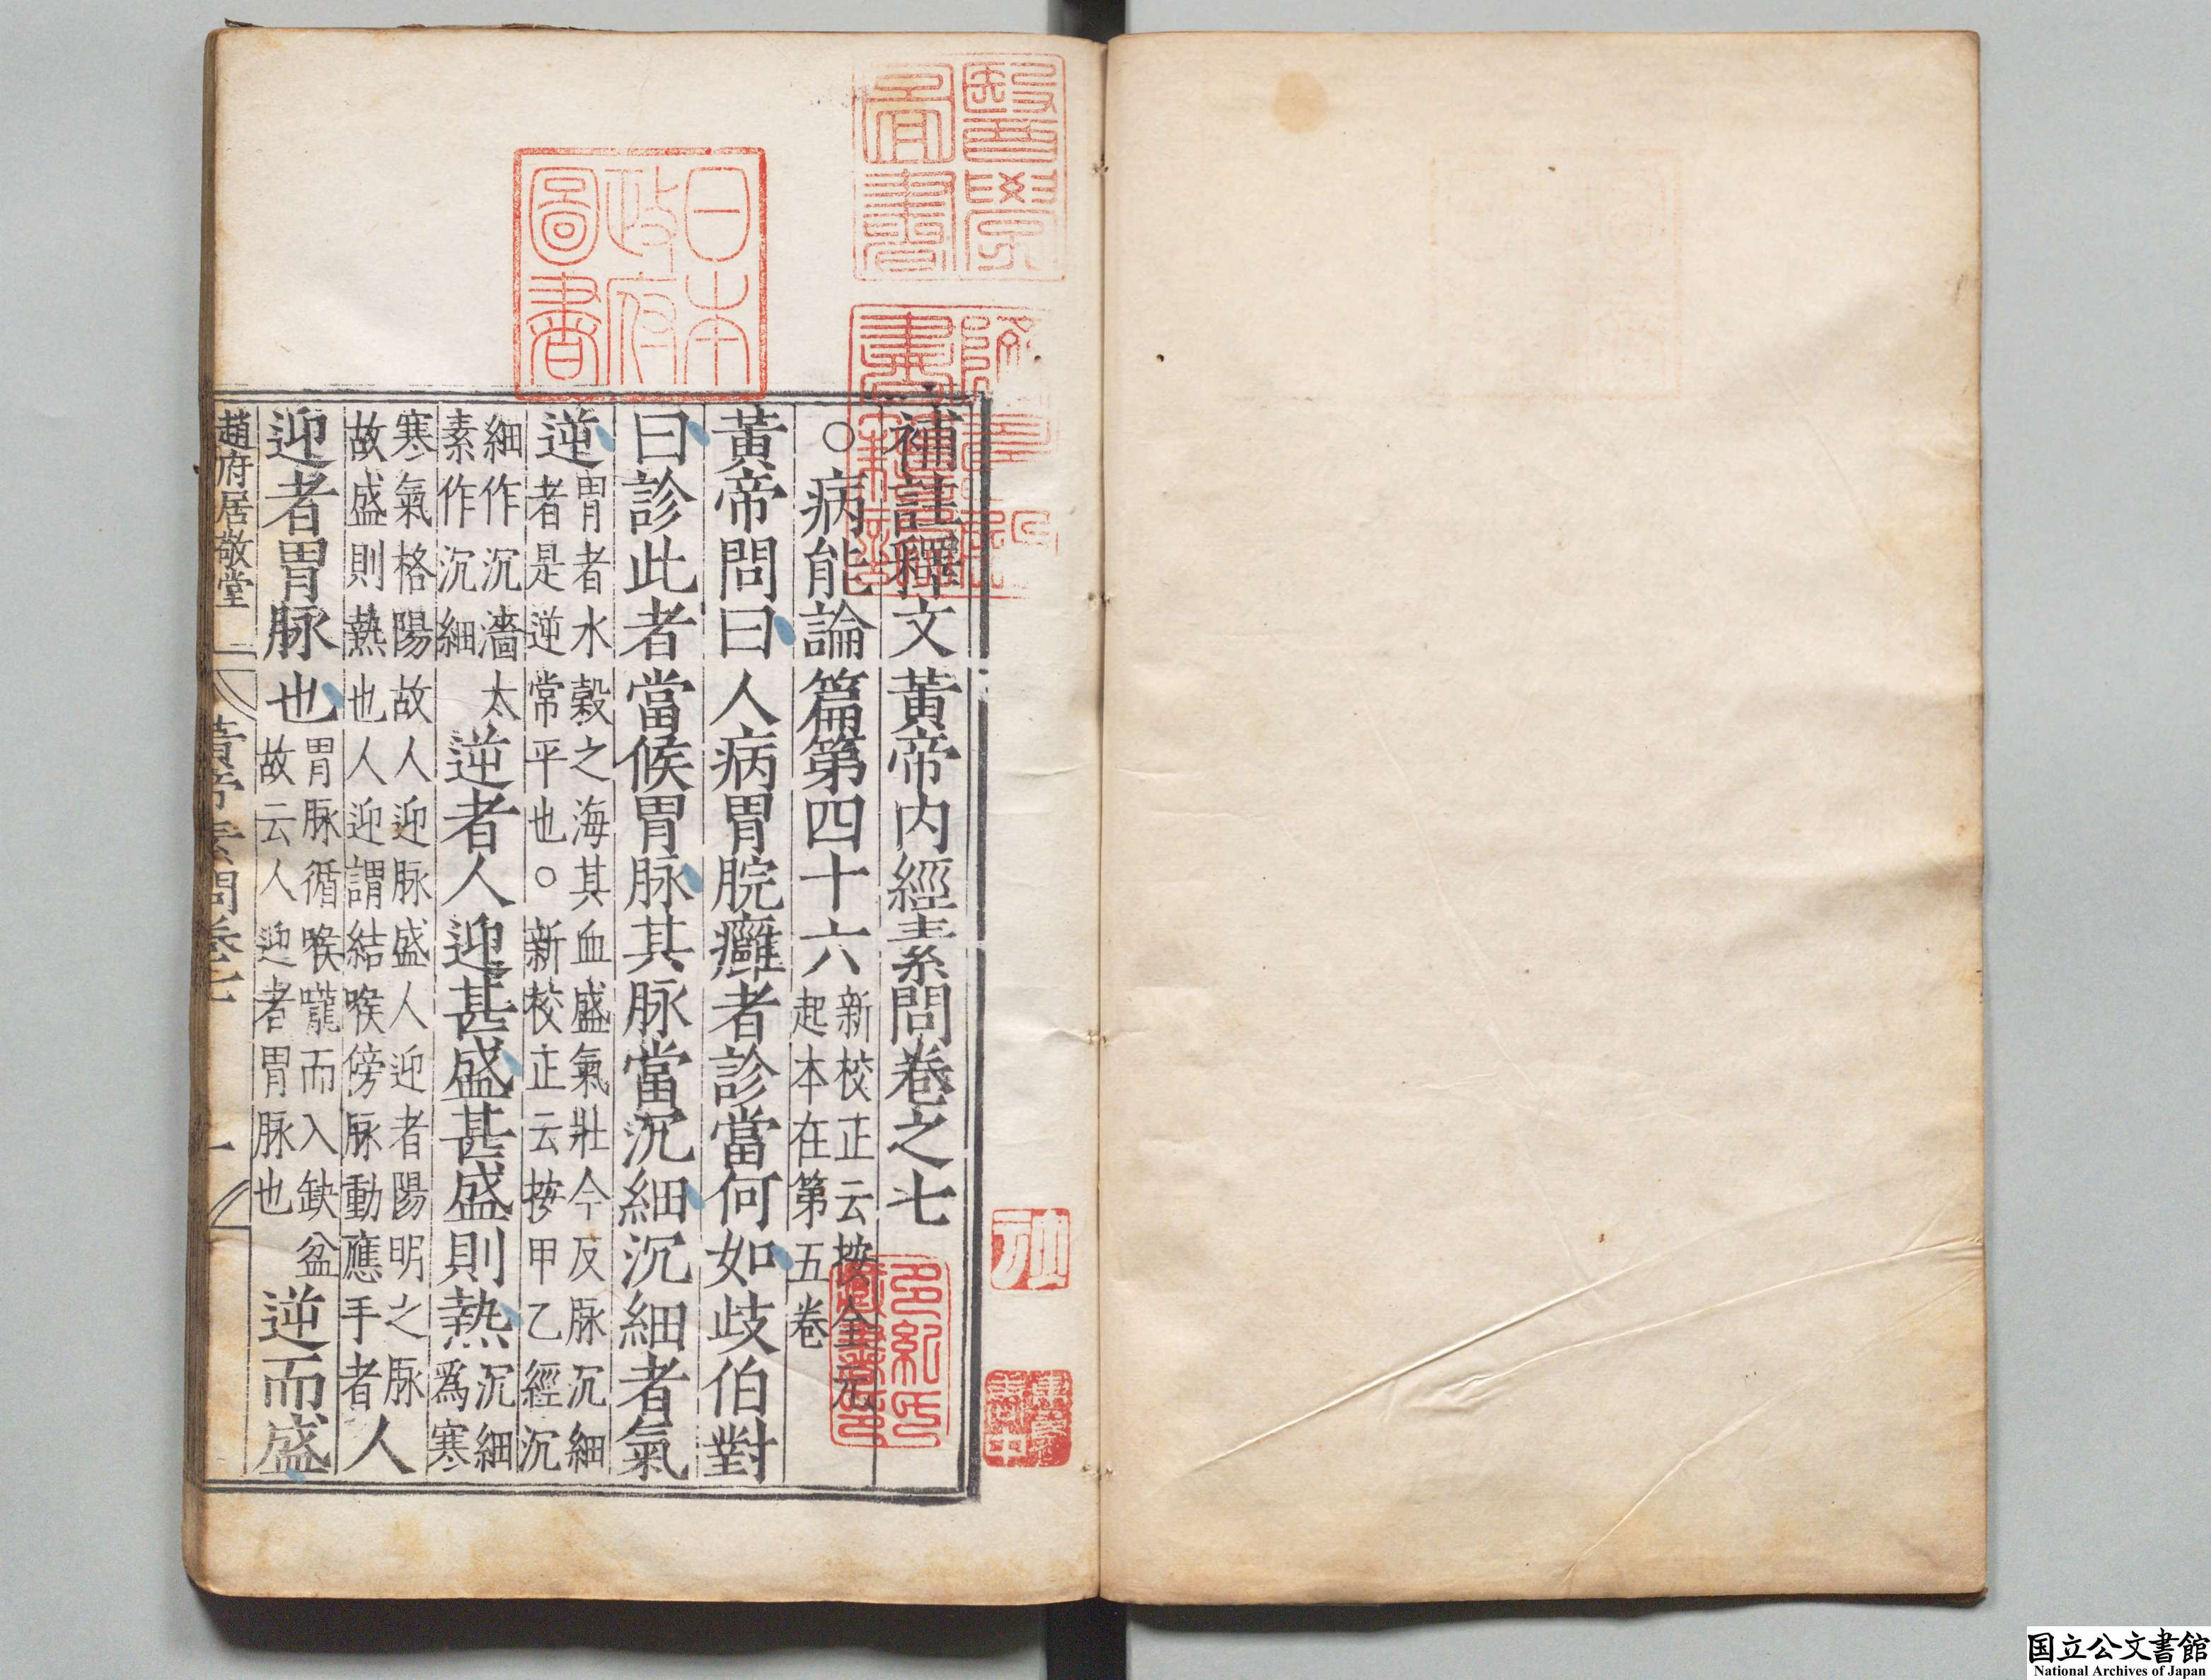 補註釋文黃帝内經素問卷之七
○病能論篇第四十六
新校正云按全元
起本在第五卷
黃帝問曰人病胃脘癰者診當何如歧伯對
曰診此者當候胃脉其脉當沉細沉細者氣
逆
胃者水穀之海其血盛氣壯今反脉沉細
者是逆常平也○新校正云按甲乙經沉
細作沉濇太
素作沉細
逆者人迎甚盛甚盛則熱
沉細
爲寒
寒氣格陽故人迎脉盛人迎者陽明之脉
故盛則熱也人迎謂結喉傍脉動應手者
人
迎者胃脉也
胃脉循喉嚨而入缺盆
故云人迎者胃脉也
逆而盛
趙府居敬堂
黃帝素問卷七
一
日本
政府
圖書
醫學
圖書
多紀氏
藏書印
国立公文書館
National Archives of Japan